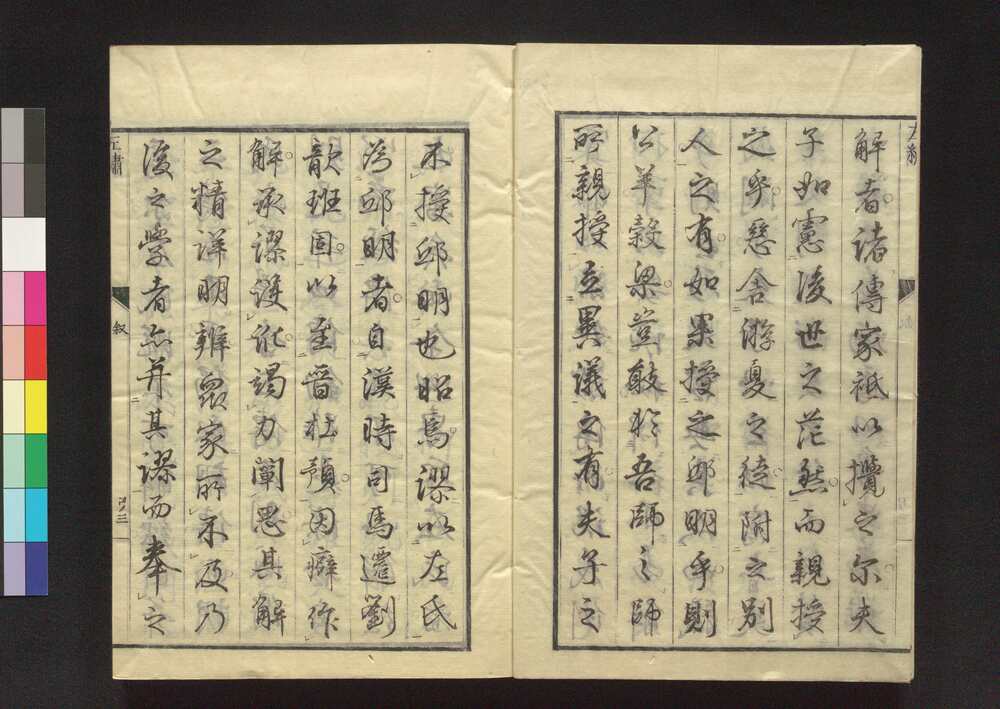 解者諸傳家祗以攬之尓夫
子如憲後世之茫然而親授
之乎懸舎游夏之徒附之別
人之有如果授之邱明乎則
公羊穀梁豈敢於吾師之師
所親授立異議之有夫子之
不授邱明也昭焉謬以左氏
為邱明者自漢時司馬遷劉
歆班固以至晉杜預因癖作
解承謬護訛竭力闡思其解
之精詳明辨衆家所不及乃
後之学者亦并其謬而奉之
叙
三